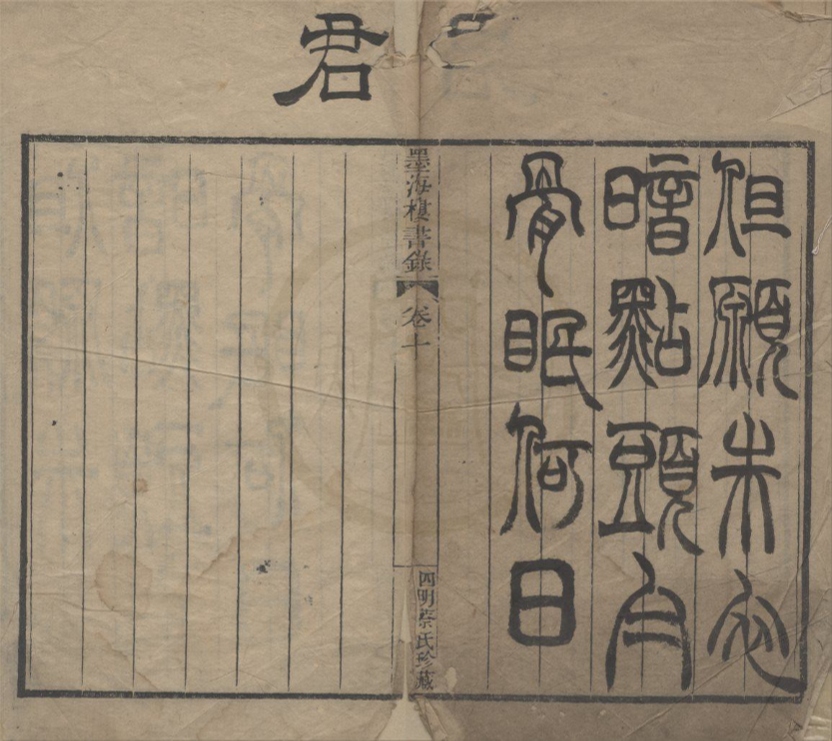 君
但願朱衣
暗點頭白
骨眠何日
墨海樓書錄
卷十
四明蔡氏珍藏